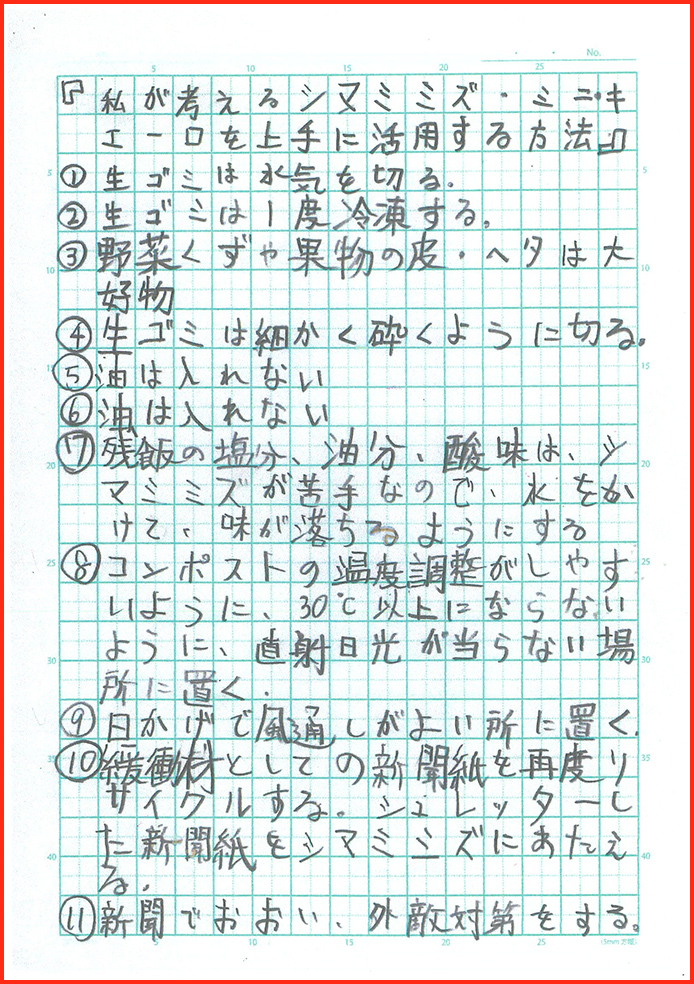 No.
5 10 15 20 25
『私が考えるシマミミズ・ミニ・キ
エーロを上手に活用する方法』
①生ゴミは水気を切る。
②生ゴミは1度冷凍する。
③野菜くずや果物の皮・ヘタは大
好物
④生ゴミは細かく砕くように切る。
⑤油は入れない
⑥油は入れない
⑦残飯の塩分、油分、酸味は、シ
マミミズが苦手なので、水をか
けて、味が落ちるようにする
⑧コンポストの温度調整がしやす
いように、30℃以上にならない
ように、直射日光が当らない場
所に置く.
⑨日かげで風通しがよい所に置く.
⑩緩衝材としての新聞紙を再度リ
サイクルする。シュレッターし
た新聞紙をシマミミズにあたえ
る.
⑪新聞でおおい、外敵対第をする。
5 10 15 20 25 (5mm方眼)